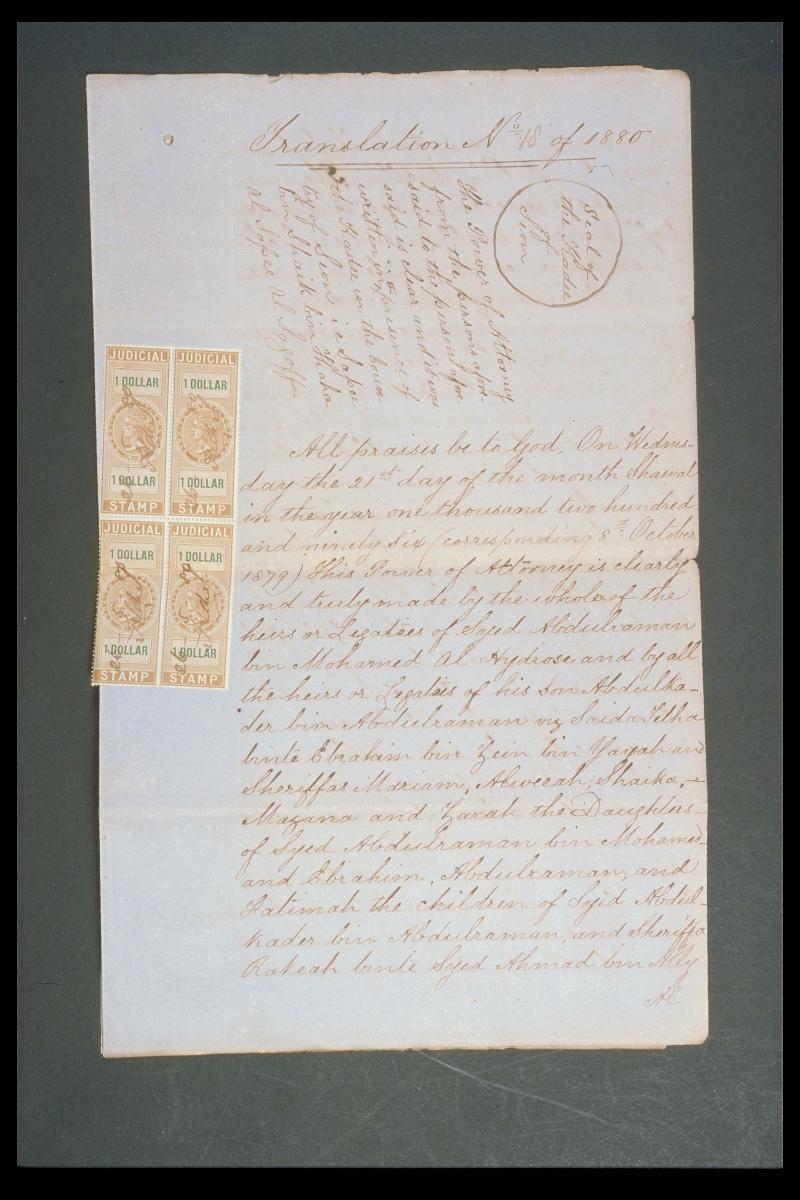 Translation No 18 of 1880
Seal of
the Kadee
of
Sion
The Power of Attorney
from the persons afore-
said to the persons afore-
said is clear and it was
written in presence of
the Kadee in the boun-
ty of Sion i e Sapee
bin Shaik bin Thaha
Al Sapee Al Sagoff
JUDICIAL
1 DOLLAR
1 DOLLAR
STAMP
JUDICIAL
1 DOLLAR
1 DOLLAR
STAMP
JUDICIAL
1 DOLLAR
1 DOLLAR
STAMP
JUDICIAL
1 DOLLAR
1 DOLLAR
STAMP
All praises be to God, On Wednes-
day the 21st day of the month Shawal
in the year one thousand two hundred
and ninety six (corresponding 8th October
1879) This Power of Attorney is clearly
and truly made by the whole of the
heirs or Legatees of Syed Abdulraman
bin Mohamed Al Hydrose and by all
the heirs or Legatees of his son Abdulka-
der bin Abdulraman viz Saida Telha
binte Ebrahim bin Zein bin Yayah and
Sheriffas Mariam, Alweeah, Shaika,
Mazana and Zarah the Daughters
of Syed Abdulraman bin Mohamed
and Ebrahim, Abdulraman, and
Fatimah the children of Syed Abdul-
kader bin Abdulraman, and Sheriffa
Rakeah binte Syed Ahmad bin Ally
Al